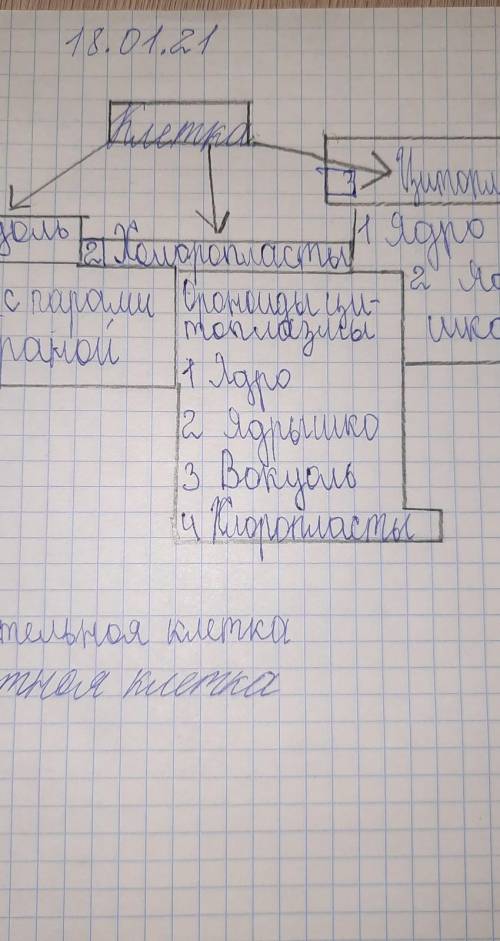 18.01.21
Клетка
3 Цитопл
1 Ядро
2 Яд
шко
уоль
2 Хлоропласты
с парами
раной
Органоиды ци-
топлазмы
1 Ядро
2 Ядрышко
3 Вокуоль
4 Хлоропласты
тельная клетка
тная клетка